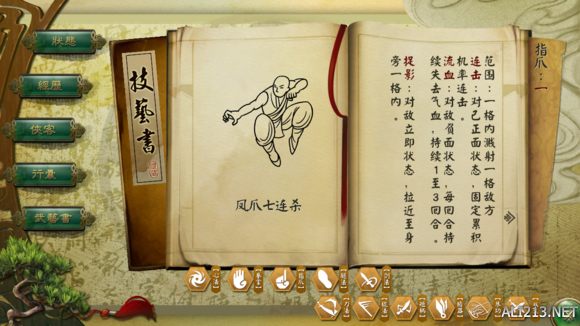 狀態
經歷
俠客
行囊
武藝書
技藝書
凤爪七连杀
指爪：一
范围：一格内溅射一格敌方
连击：对己正面状态，固定累积
机率连击。
流血：对敌负面状态，每回合持
续失去气血，持续1至3回合。
捉影：对敌立即状态，拉近至身
旁一格内。
ALI213.NET